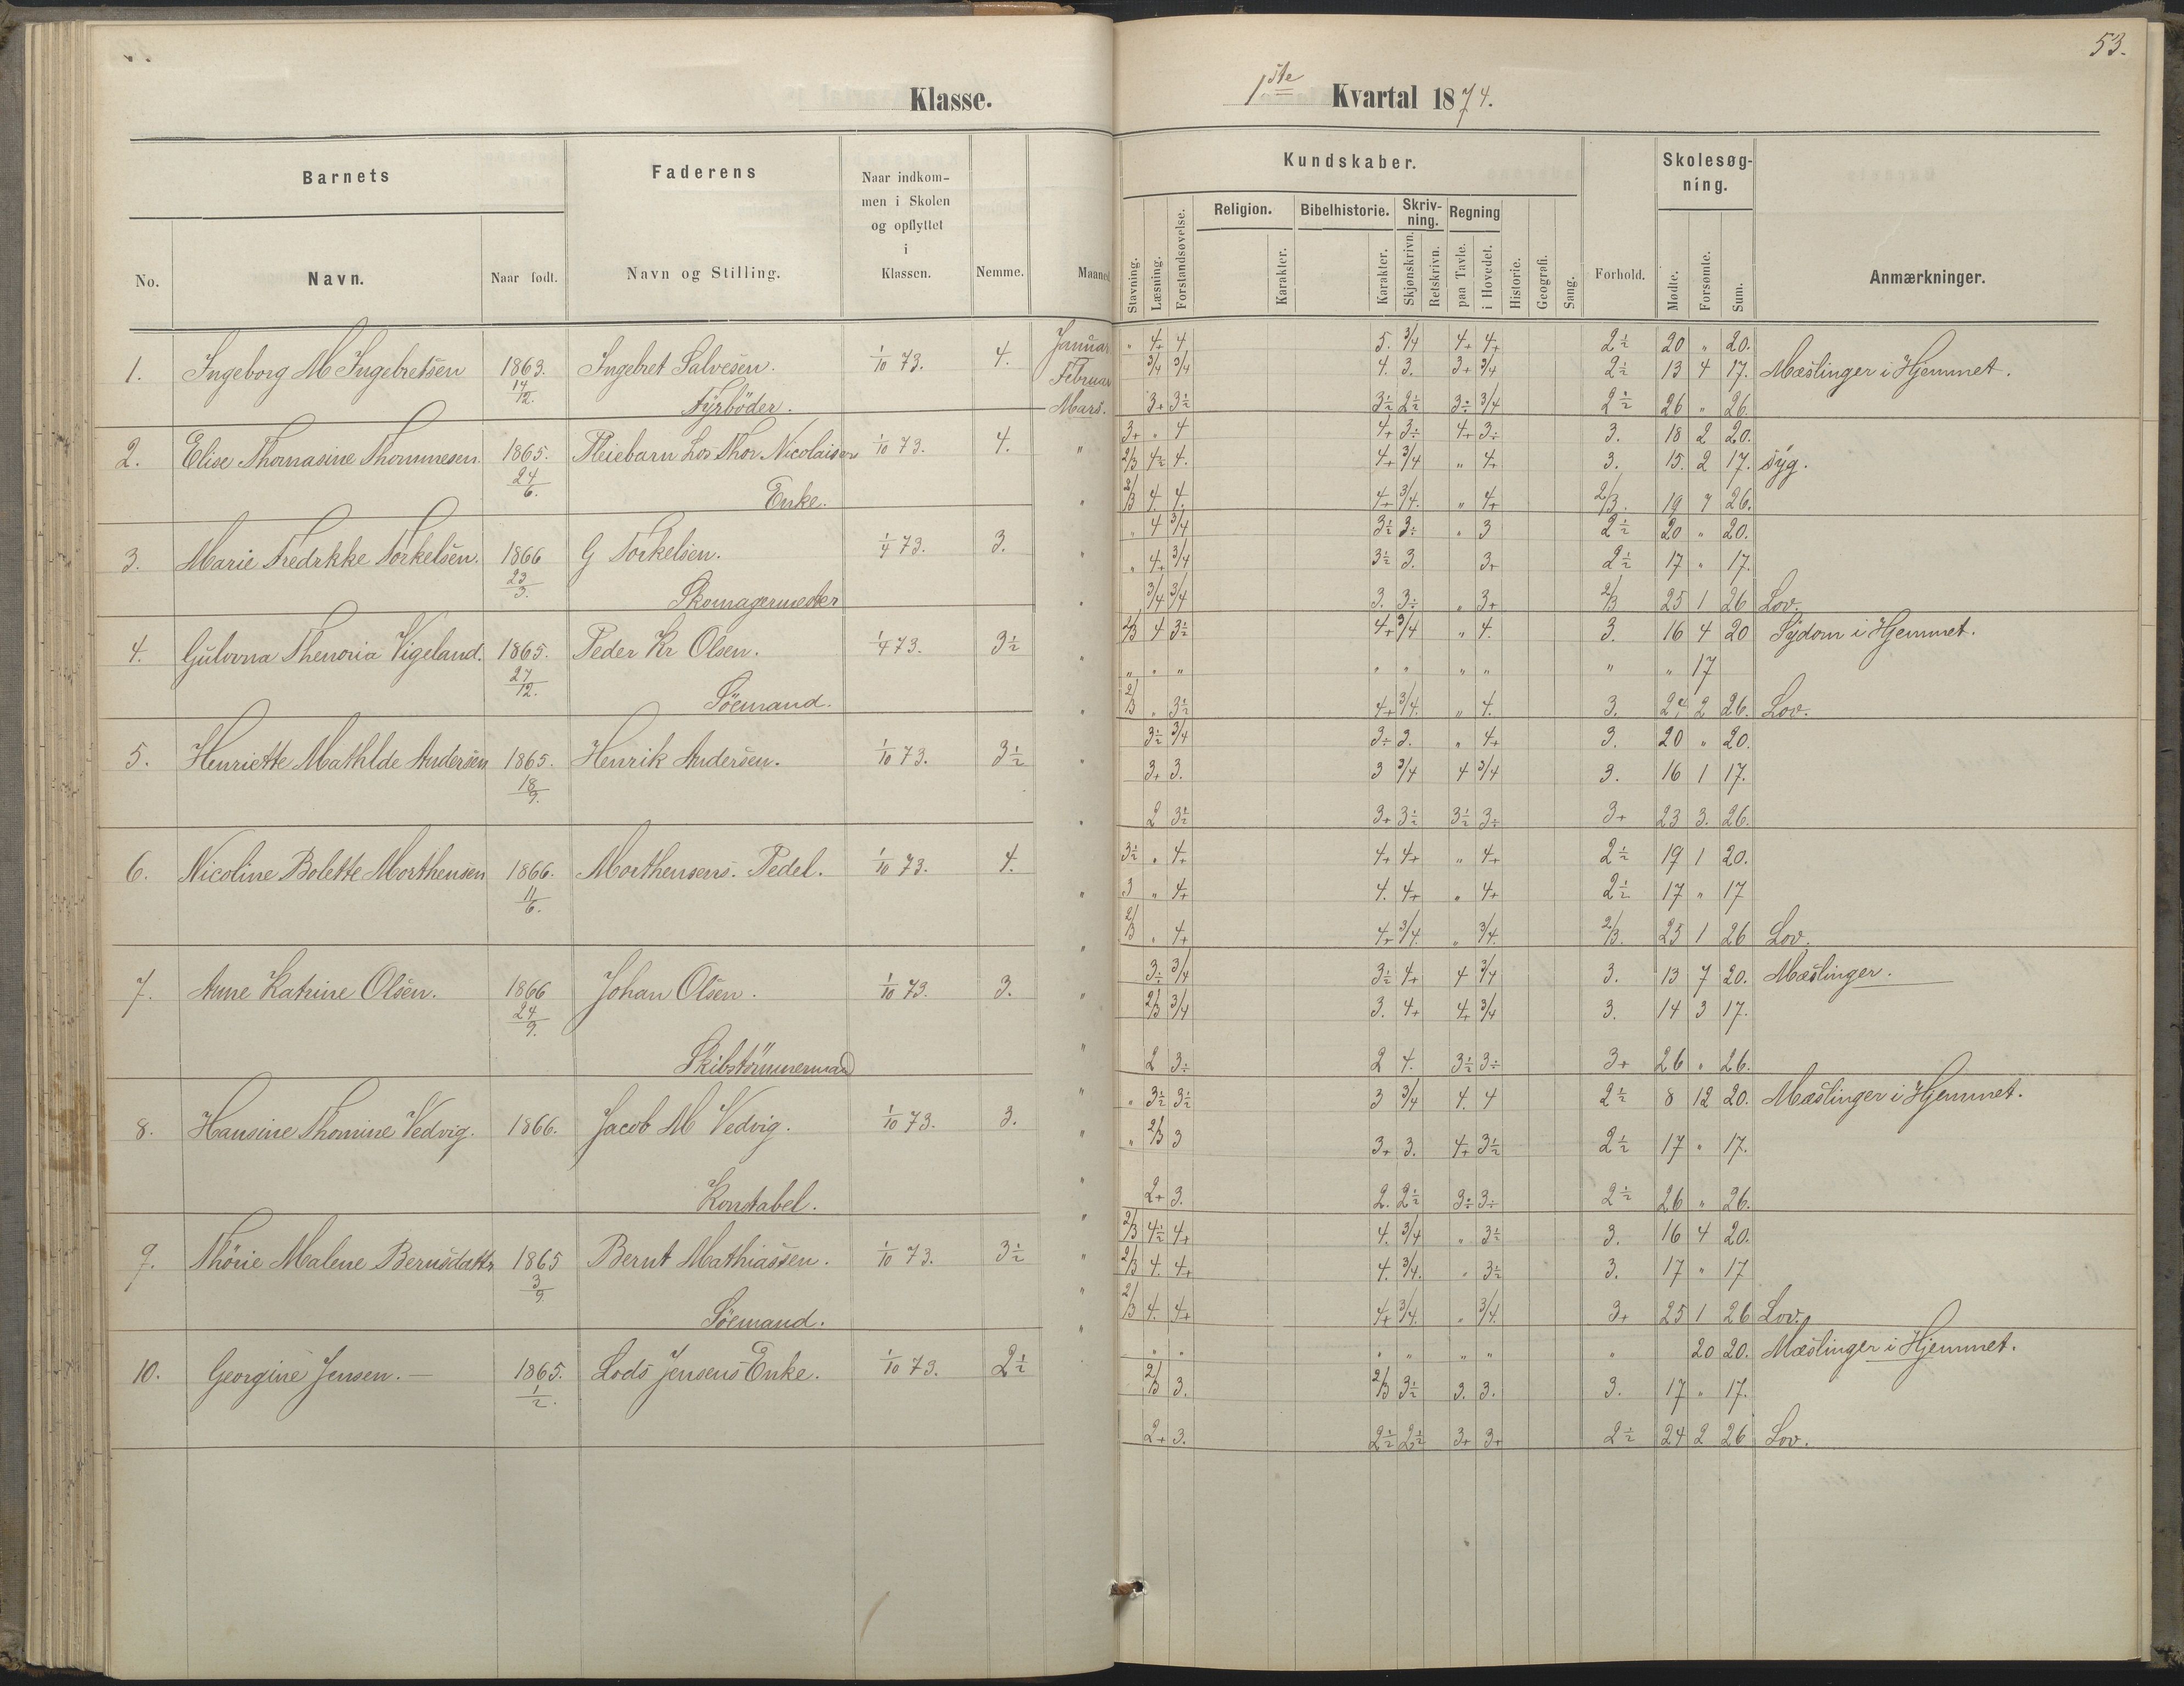 53.
Klasse.
1ste Kvartal 1874.
Barnets
Faderens
Naar indkom-
men i Skolen
og opflyttet
i
Klassen.
Nemme.
Maaned
No.
Navn.
Naar født.
Navn og Stilling.
Kundskaber.
Skolesøg-
ning.
Stavning.
Læsning.
Forstandsøvelse.
Religion.
Karakter.
Bibelhistorie.
Karakter.
Skriv-
ning.
Skjønskrivn.
Retskrivn.
Regning
paa Tavle.
i Hovedet.
Historie.
Geografi.
Sang.
Forhold.
Mødte.
Forsømte.
Sum.
Anmærkninger.
1. Ingeborg M Ingebretsen 1863. 14/12. Ingebret Salvesen. 1/10 73. 4.
Fyrböder.
Januar " 4+ 4 5. 3/4 4+ 4+ 2½ 20 " 20.
Februar 3/4 3/4 4. 3. 3+ 3/4 2½ 13 4 17. Mæslinger i Hjemmet.
Mars. 3+ 3½ 3½ 2½ 3÷ 3/4 2½ 26 " 26.
2. Elise Thomasine Thommesen. 1865. 24/6. Pleiebarn hos Thor Nicolaisens 1/10 73. 4.
Enke.
3+ " 4 4+ 3÷ 4+ 3÷ 3. 18 2 20.
2/3 4½ 4. 4+ 3/4 " 4+ 3. 15. 2 17. syg.
2/3 4. 4. 4+ 3/4. " 4+ 2/3. 19 7 26.
3. Marie Fredrkke Torkelsen. 1866 23/3. G Torkelsen. 1/4 73. 3.
Skomagermester
" 4 3/4 3½ 3÷ " 3 2½ 20 " 20.
" 4+ 3/4 3½ 3. 3+ 2½ 17 " 17.
3/4 3/4 3. 3÷ " 3+ 2/3 25 1 26 Lov.
4. Gulovna Thenoria Vigeland. 1865. 27/12. Peder Kr Olsen. 1/4 73. 3½
Söemand.
2/3 4 3½ 4+ 3/4 " 4. 3. 16 4 20 Sygdom i Hjemmet.
" " " " " " " " " 17
2/3 " 3½ 4+ 3/4. " 4. 3. 24 2 26. Lov.
5. Henriette Mathlde Andersen 1865. 18/9. Henrik Andersen. 1/10 73. 3½
3½ 3/4 3÷ 3. " 4+ 3. 20 " 20.
3+ 3. 3 3/4 4 3/4 3. 16 1 17.
2 3½ 3+ 3½ 3½ 3÷ 3+ 23 3. 26.
6. Nicoline Bolette Morthensen 1866. 11/6. Morthensens. Pedel. 1/10 73. 4.
3½ " 4+ 4+ 4+ " 4+ 2½ 19 1 20.
3 " 4+ 4. 4+ " 4+ 2½ 17 " 17
2/3 " 4+ 4+ 3/4. " 3/4. 2/3. 25 1 26 Lov.
7. Anne Katrine Olsen. 1866 24/9. Johan Olsen. 1/10 73. 3.
Skibstömmermand
3÷ 3/4 3½ 4+ 4 3/4 3. 13 7 20. Mæslinger.
2/3 3/4 3. 4+ 4+ 3/4 3. 14 3 17.
2 3÷ 2 4. 3½ 3÷ 3+ 26 " 26.
8. Hansine Thomine Vedvig. 1866. Jacob M Vedvig. 1/10 73. 3.
Konstabel.
" 3½ 3½ 3 3/4 4. 4 2½ 8 12 20. Mæslinger i Hjemmet.
" 2/3 3 3+ 3. 4+ 3½ 2½ 17 " 17.
2+ 3. 2. 2½ 3÷ 3÷ 2½ 26 " 26.
9. Thörie Malene Berusdattr 1865 3/9 Bernt Mathiassen. 1/10 73. 3½
Söemand.
2/3 4½ 4+ 4. 3/4 " 3½ 3. 16 4 20.
2/3 4. 4+ 4. 3/4. " 3½ 3. 17 " 17
2/3 4. 4+ 4+ 3/4. " 3/4. 3+ 25 1 26 Lov.
10. Georgine Jensen. — 1865. 1/2. Lods Jensens Enke. 1/10 73. 2½
" " " " " " " 20 20. Mæslinger i Hjemmet.
2/3 3. 2/3 3½ 3. 3. 3. 17 " 17.
2+ 3. 2½ 2½ 3+ 3+ 2½ 24 2 26 Lov.